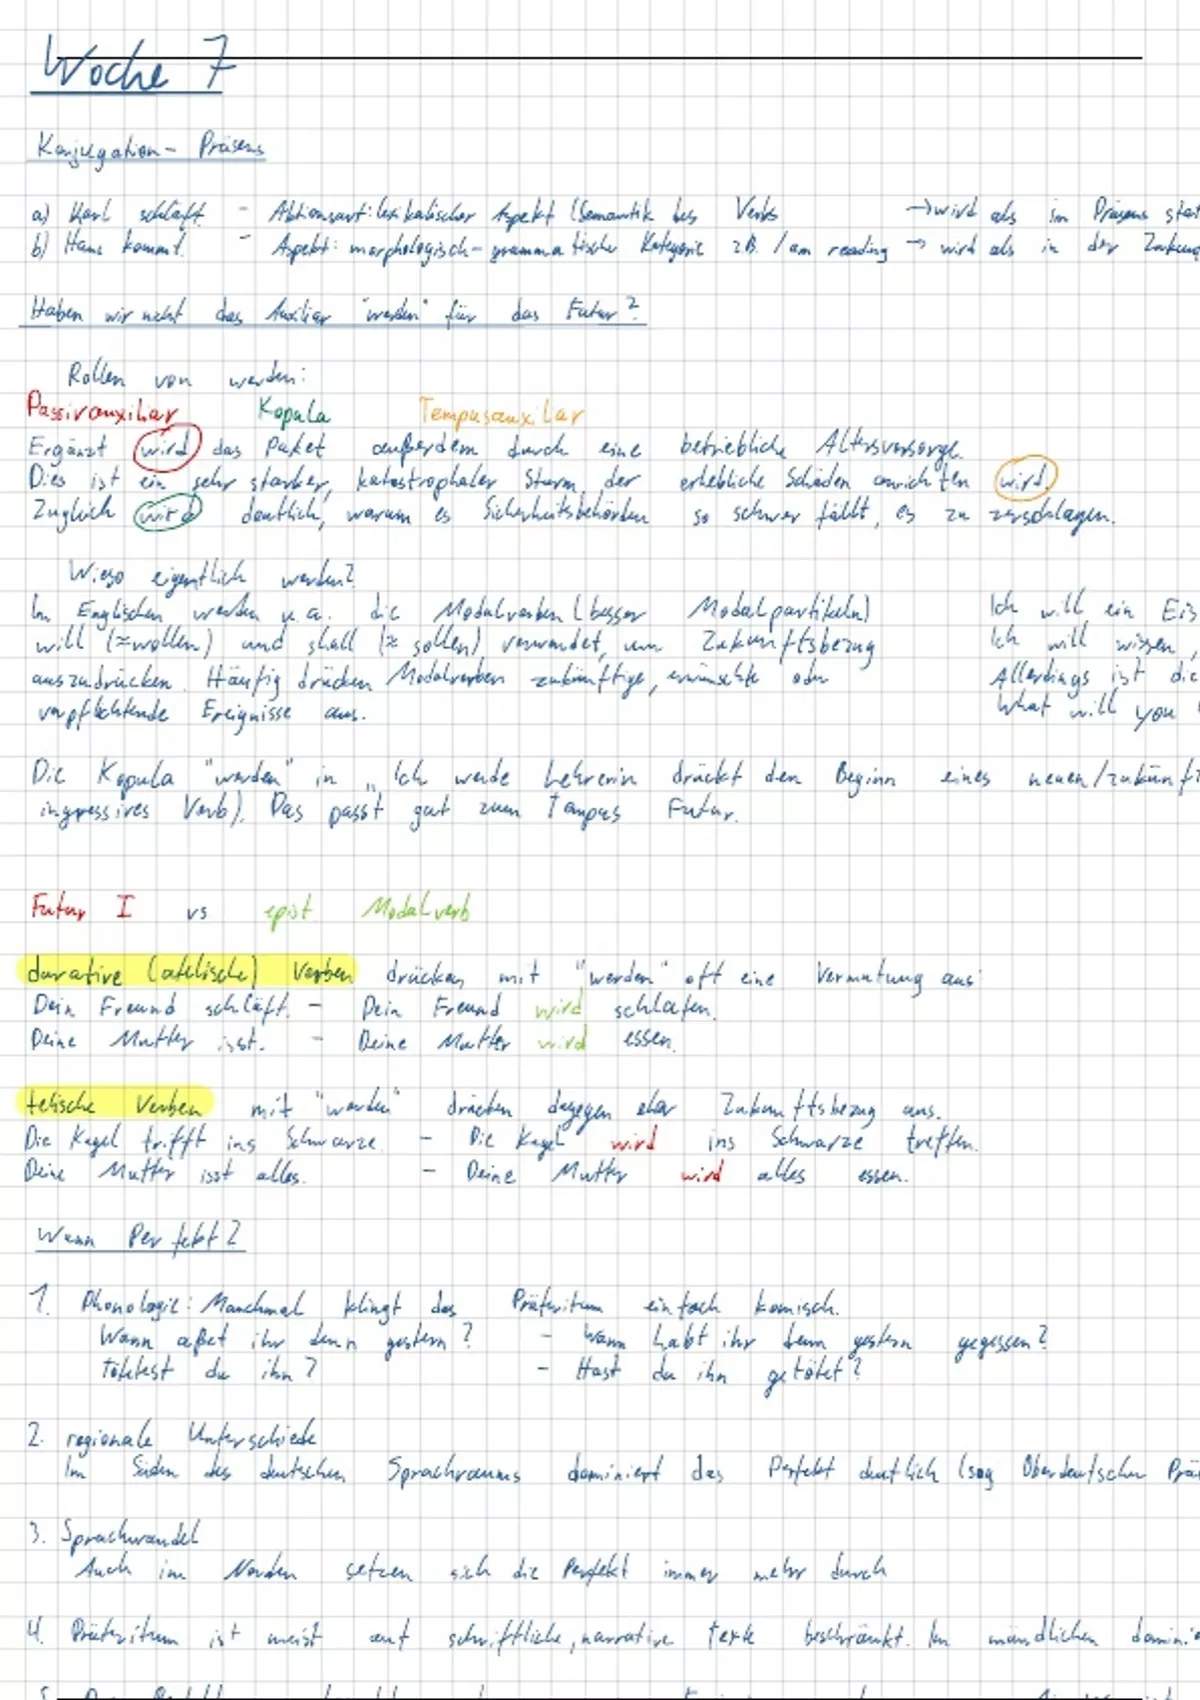 Woche 7
Konjugation - Präsens
a) Karl schläft - Aktionsart: lexikalischer Aspekt (Semantik des Verbs → wird als im Präsens stat
b) Hans kommt. - Aspekt: morphologisch-grammatische Kategorie z.B. I am reading → wird als in der Zukun
Haben wir nicht das Auxiliar "werden" für das Futur?
Rollen von werden:
Passivauxiliar Kopula Tempusauxiliar
Ergänzt wird das Paket außerdem durch eine betriebliche Altersvorsorge.
Dies ist ein sehr starker, katastrophaler Sturm der erhebliche Schäden anrichten wird.
Zugleich wird deutlich, warum es Sicherheitsbehörden so schwer fällt, es zu zerschlagen.
Wieso eigentlich werden?
Im Englischen werden u.a. die Modalverben (besser Modalpartikeln) Ich will ein Eis
will (≈wollen) und shall (≈ sollen) verwendet, um Zukunftsbezug Ich will wissen,
auszudrücken. Häufig drücken Modalverben zukünftige, erwünschte oder Allerdings ist die
verpflichtende Ereignisse aus. What will you
Die Kopula "werden" in „Ich werde Lehrerin drückt den Beginn eines neuen/zukünft
ingressives Verb). Das passt gut zum Tempus Futur.
Futur I vs epist Modalverb
durative (atelische) Verben drücken mit "werden" oft eine Vermutung aus:
Dein Freund schläft. - Dein Freund wird schlafen.
Deine Mutter isst. - Deine Mutter wird essen.
telische Verben mit "werden" drücken dagegen eher Zukunftsbezug aus.
Die Kugel trifft ins Schwarze - Die Kugel wird ins Schwarze treffen.
Deine Mutter isst alles. - Deine Mutter wird alles essen.
Wann Perfekt?
1. Phonologie: Manchmal klingt das Präteritum einfach komisch.
Wann aßet ihr denn gestern? - Wann habt ihr denn gestern gegessen?
Tötetest du ihn? - Hast du ihn getötet?
2. regionale Unterschiede
Im Süden des deutschen Sprachraums dominiert das Perfekt deutlich (sog Oberdeutscher Prä
3. Sprachwandel
Auch im Norden setzen sich die Perfekt immer mehr durch
4. Präteritum ist meist auf schriftliche, narrative Texte beschränkt. Im mündlichen domini